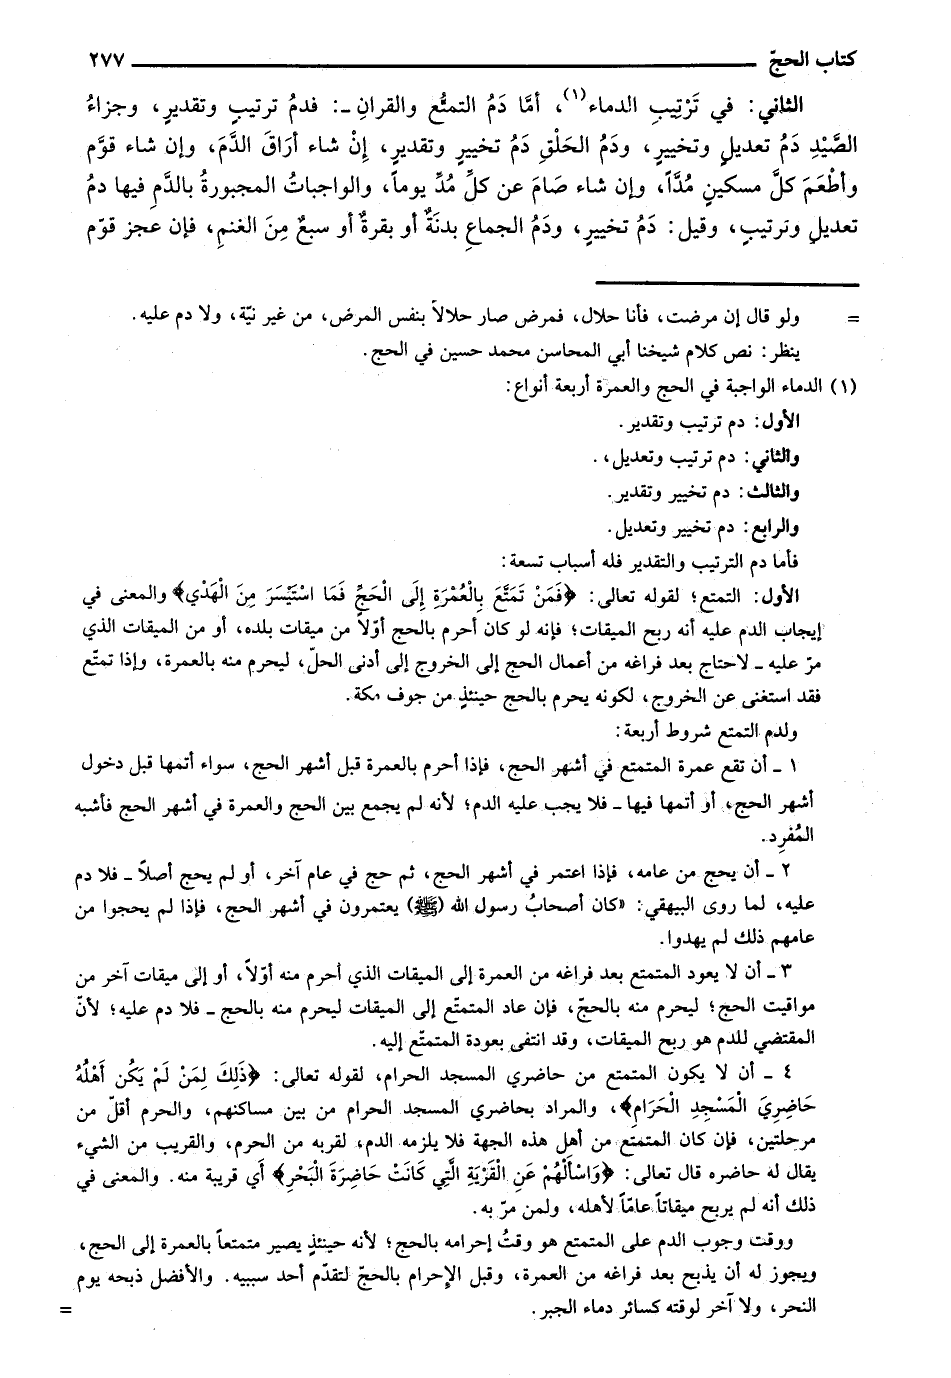 كتاب الحجّ ٢٧٧
الثاني: في تَرْتِيبِ الدماء(١)، أمَّا دَمُ التمتُّع والقرانِ ـ: فدمُ ترتيبٍ وتقديرٍ، وجزاءُ
الصَّيْدِ دَمُ تعديلٍ وتخييرٍ، ودَمُ الحَلْقِ دَمُ تخييرٍ وتقديرٍ، إنْ شاء أرَاقَ الدَّمَ، وإن شاء قوَّم
وأطْعَمَ كلَّ مسكينٍ مُدَّاً، وإن شاء صَامَ عن كلِّ مُدٍّ يوماً، والواجباتُ المجبورةُ بالدَّمِ فيها دمُ
تعديلٍ وترتيبٍ، وقيل: دَمُ تخييرٍ، ودَمُ الجماعِ بدنَةٌ أو بقرةٌ أو سبعٌ مِنَ الغنمِ، فإن عجز قوّم
= ولو قال إن مرضت، فأنا حلال، فمرض صار حلالاً بنفس المرض، من غير نيّة، ولا دم عليه.
ينظر: نص كلام شيخنا أبي المحاسن محمد حسين في الحج.
(١) الدماء الواجبة في الحج والعمرة أربعة أنواع:
الأول: دم ترتيب وتقدير.
والثاني: دم ترتيب وتعديل،.
والثالث: دم تخيير وتقدير.
والرابع: دم تخيير وتعديل.
فأما دم الترتيب والتقدير فله أسباب تسعة:
الأول: التمتع؛ لقوله تعالى: ﴿فَمَنْ تَمَتَّعَ بِالْعُمْرَةِ إِلَى الْحَجِّ فَمَا اسْتَيْسَرَ مِنَ الْهَدْي﴾ والمعنى في
إيجاب الدم عليه أنه ربح الميقات؛ فإنه لو كان أحرم بالحج أوّلاً من ميقات بلده، أو من الميقات الذي
مرّ عليه ـ لاحتاج بعد فراغه من أعمال الحج إلى الخروج إلى أدنى الحلّ، ليحرم منه بالعمرة، وإذا تمتّع
فقد استغنى عن الخروج، لكونه يحرم بالحج حينئذٍ من جوف مكة.
ولدم التمتع شروط أربعة:
١ ـ أن تقع عمرة المتمتع في أشهر الحج، فإذا أحرم بالعمرة قبل أشهر الحج، سواء أتمها قبل دخول
أشهر الحج، أو أتمها فيها ـ فلا يجب عليه الدم؛ لأنه لم يجمع بين الحج والعمرة في أشهر الحج فأشبه
المُفرِد.
٢ ـ أن يحج من عامه، فإذا اعتمر في أشهر الحج، ثم حج في عام آخر، أو لم يحج أصلاً ـ فلا دم
عليه، لما روى البيهقي: «كان أصحابُ رسول الله (ﷺ) يعتمرون في أشهر الحج، فإذا لم يحجوا من
عامهم ذلك لم يهدوا.
٣ ـ أن لا يعود المتمتع بعد فراغه من العمرة إلى الميقات الذي أحرم منه أوّلاً، أو إلى ميقات آخر من
مواقيت الحج؛ ليحرم منه بالحجّ، فإن عاد المتمتّع إلى الميقات ليحرم منه بالحج ـ فلا دم عليه؛ لأنّ
المقتضي للدم هو ربح الميقات، وقد انتفى بعودة المتمتّع إليه.
٤ ـ أن لا يكون المتمتع من حاضري المسجد الحرام، لقوله تعالى: ﴿ذَلِكَ لِمَنْ لَمْ يَكُن أَهْلُهُ
حَاضِرِيَ الْمَسْجِدِ الْحَرَامِ﴾، والمراد بحاضري المسجد الحرام من بين مساكنهم، والحرم أقلّ من
مرحلتين، فإن كان المتمتع من أهل هذه الجهة فلا يلزمه الدم، لقربه من الحرم، والقريب من الشيء
يقال له حاضره قال تعالى: ﴿وَاسْأَلْهُمْ عَنِ الْقَرْيَةِ الَّتِي كَانَتْ حَاضِرَةَ الْبَحْرِ﴾ أَي قريبة منه. والمعنى في
ذلك أنه لم يربح ميقاتاً عامّاً لأهله، ولمن مرّ به.
ووقت وجوب الدم على المتمتع هو وقتُ إحرامه بالحج؛ لأنه حينئذٍ يصير متمتعاً بالعمرة إلى الحج،
ويجوز له أن يذبح بعد فراغه من العمرة، وقبل الإحرام بالحجّ لتقدّم أحد سببيه. والأفضل ذبحه يوم
النحر، ولا آخر لوقته كسائر دماء الجبر. =